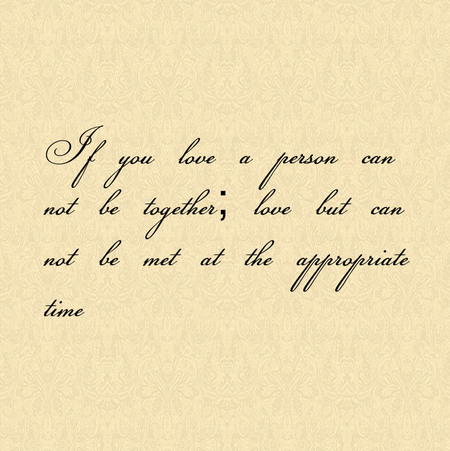 If you love a person can
not be together; love but can
not be met at the appropriate
time